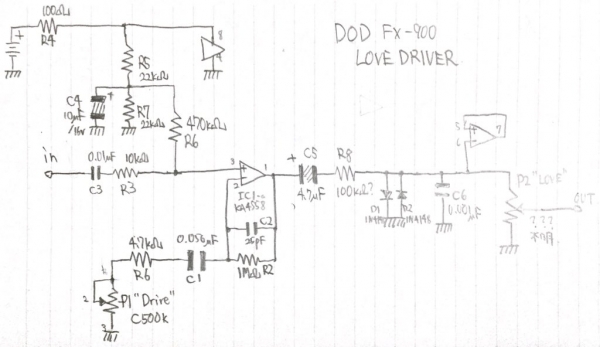 DOD FX-900
LOVE DRIVER
100Ω
R4
8
4
R5
22kΩ
C4
10μF
/16v
R7
22kΩ
470kΩ
R6
in
0.01μF
C3
10kΩ
R3
3
2
1
IC1-a
KA4558
C2
25pF
1MΩ R2
4.7kΩ
R6
0.056μF
C1
2
3
P1 "Drive"
C500k
C5
4.7μF
R8
100kΩ?
D1
1N4148
D2
1N4148
C6
0.001μF
5
6
7
P2 "LOVE"
OUT
???
不明